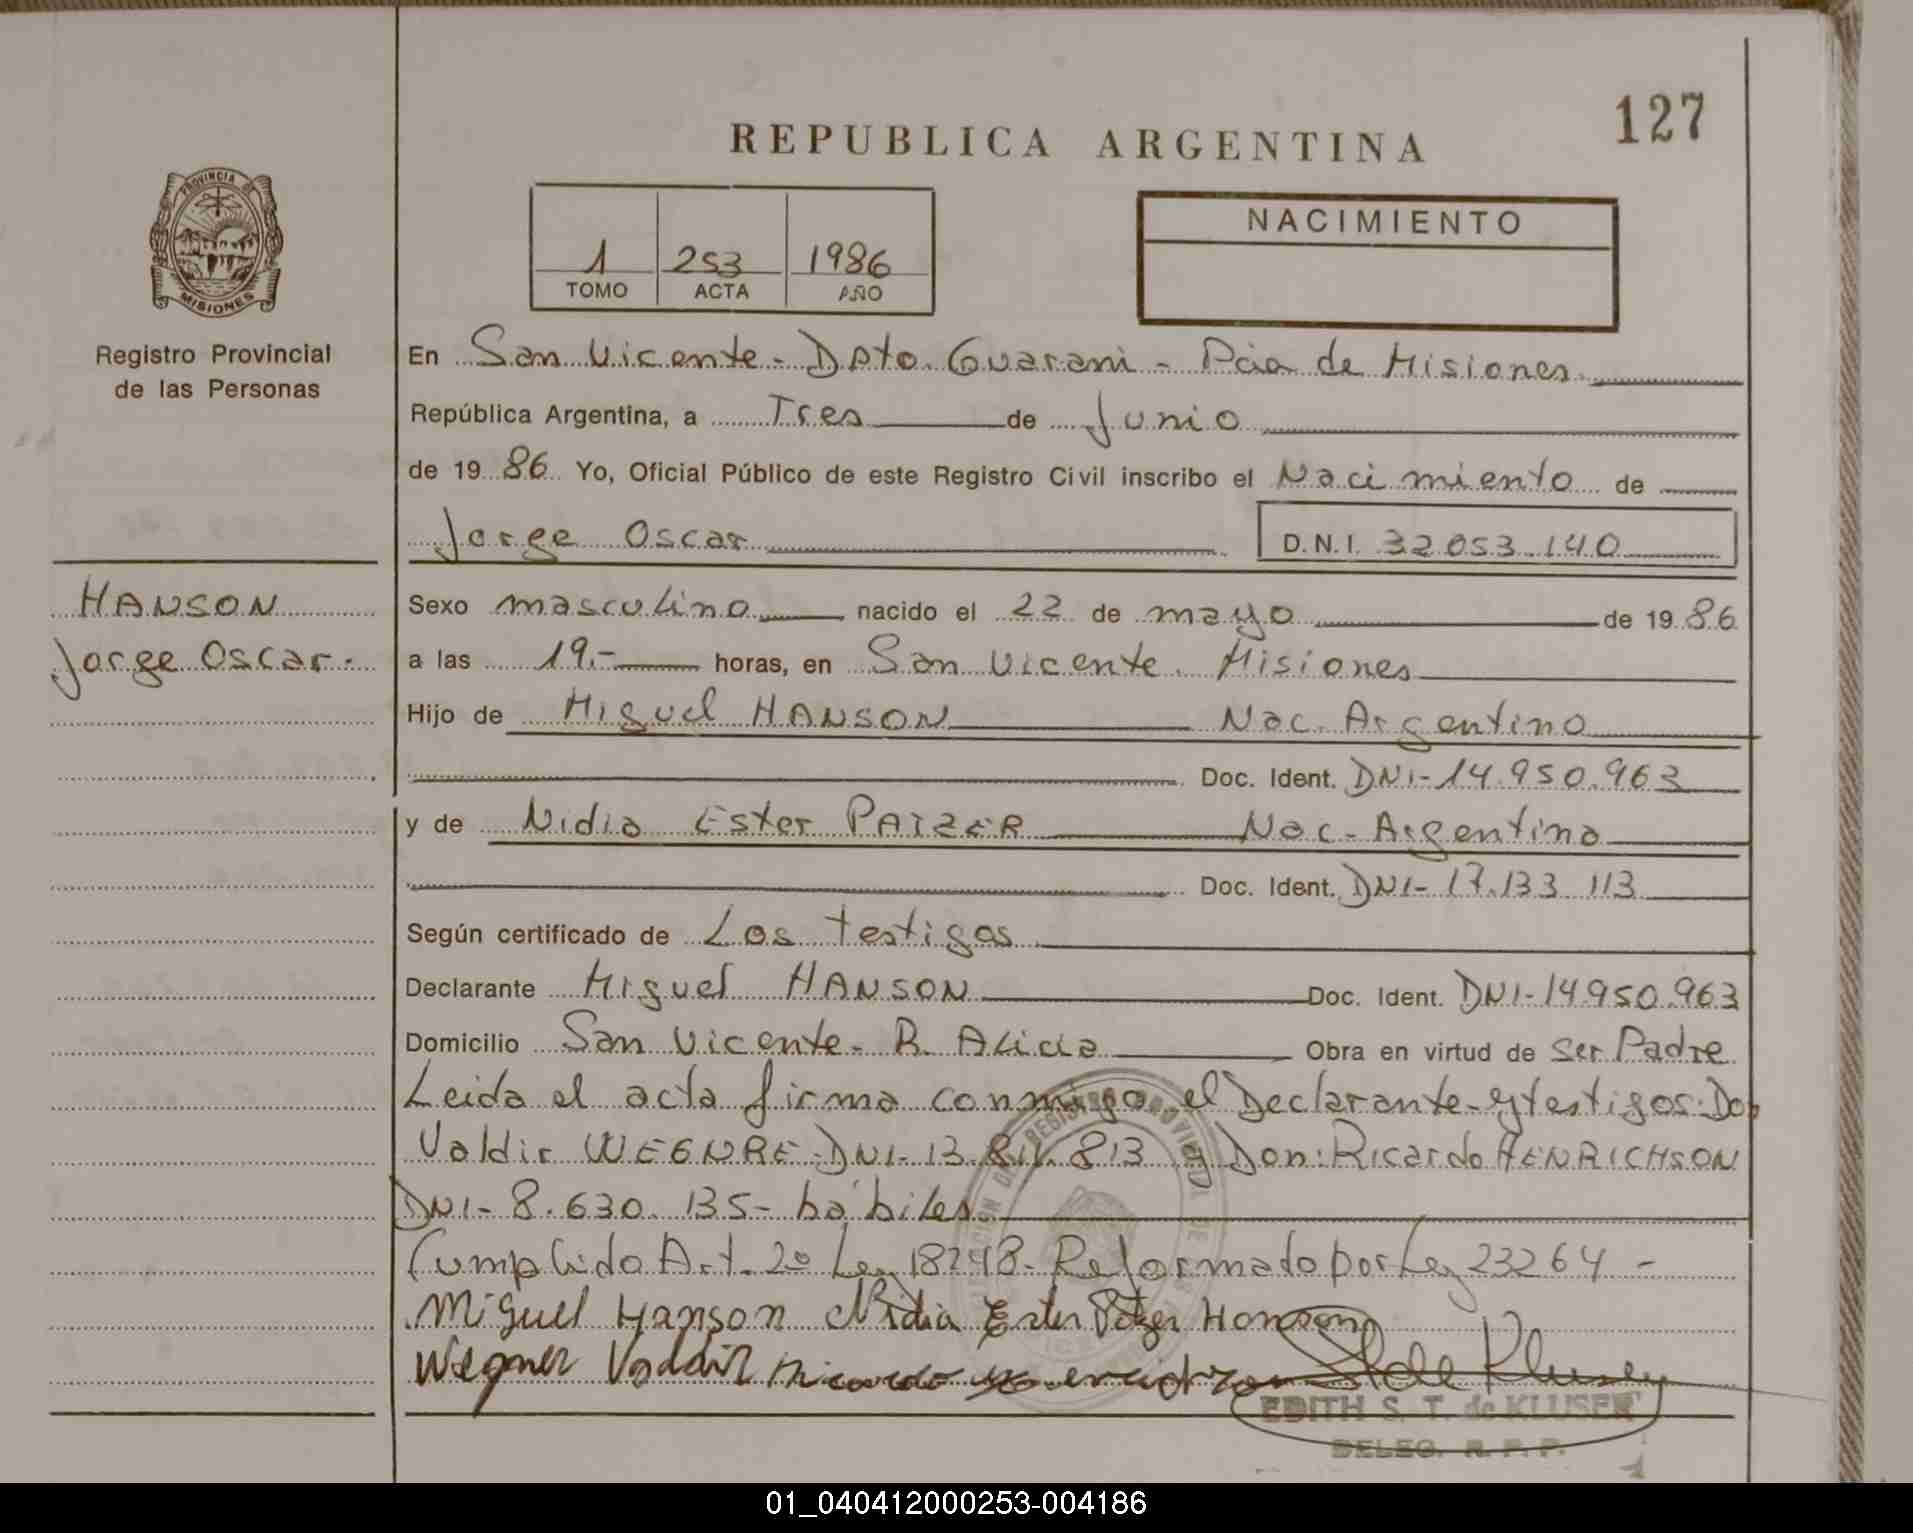 127
REPUBLICA ARGENTINA
PROVINCIA DE
MISIONES
Registro Provincial
de las Personas
1 253 1986
TOMO ACTA AÑO
NACIMIENTO
En San Vicente - Dpto. Guarani - Pcia de Misiones
República Argentina, a Tres de Junio
de 1986 Yo, Oficial Público de este Registro Civil inscribo el Nacimiento de
Jorge Oscar D.N.I. 32.053.140
HANSON
Jorge Oscar.
Sexo masculino nacido el 22 de mayo de 1986
a las 19.- horas, en San Vicente. Misiones
Hijo de Miguel HANSON Nac. Argentino
Doc. Ident. DNI-14.950.963
y de Nidia Ester PAIZER Nac- Argentina
Doc. Ident. DNI- 17.133 113
Según certificado de Los testigos
Declarante Miguel HANSON Doc. Ident. DNI-14.950.963
Domicilio San Vicente- R. Alicia Obra en virtud de ser Padre
Leida el acta firma conmigo el Declarante-y testigos. Don
Valdir WEGNRE-DNI- 13.811.813 y Don: Ricardo HENRICHSON
DNI- 8.630.135- hábiles
Cumplido Art. 2º Ley 18248- Reformado por Ley 23264 -
Miguel Hanson Nidia Ester Hanson
Wegner Valdir Ricardo de Kluser
EDITH S. T. de KLUSER
DELEG. R. P. P.
01_040412000253-004186